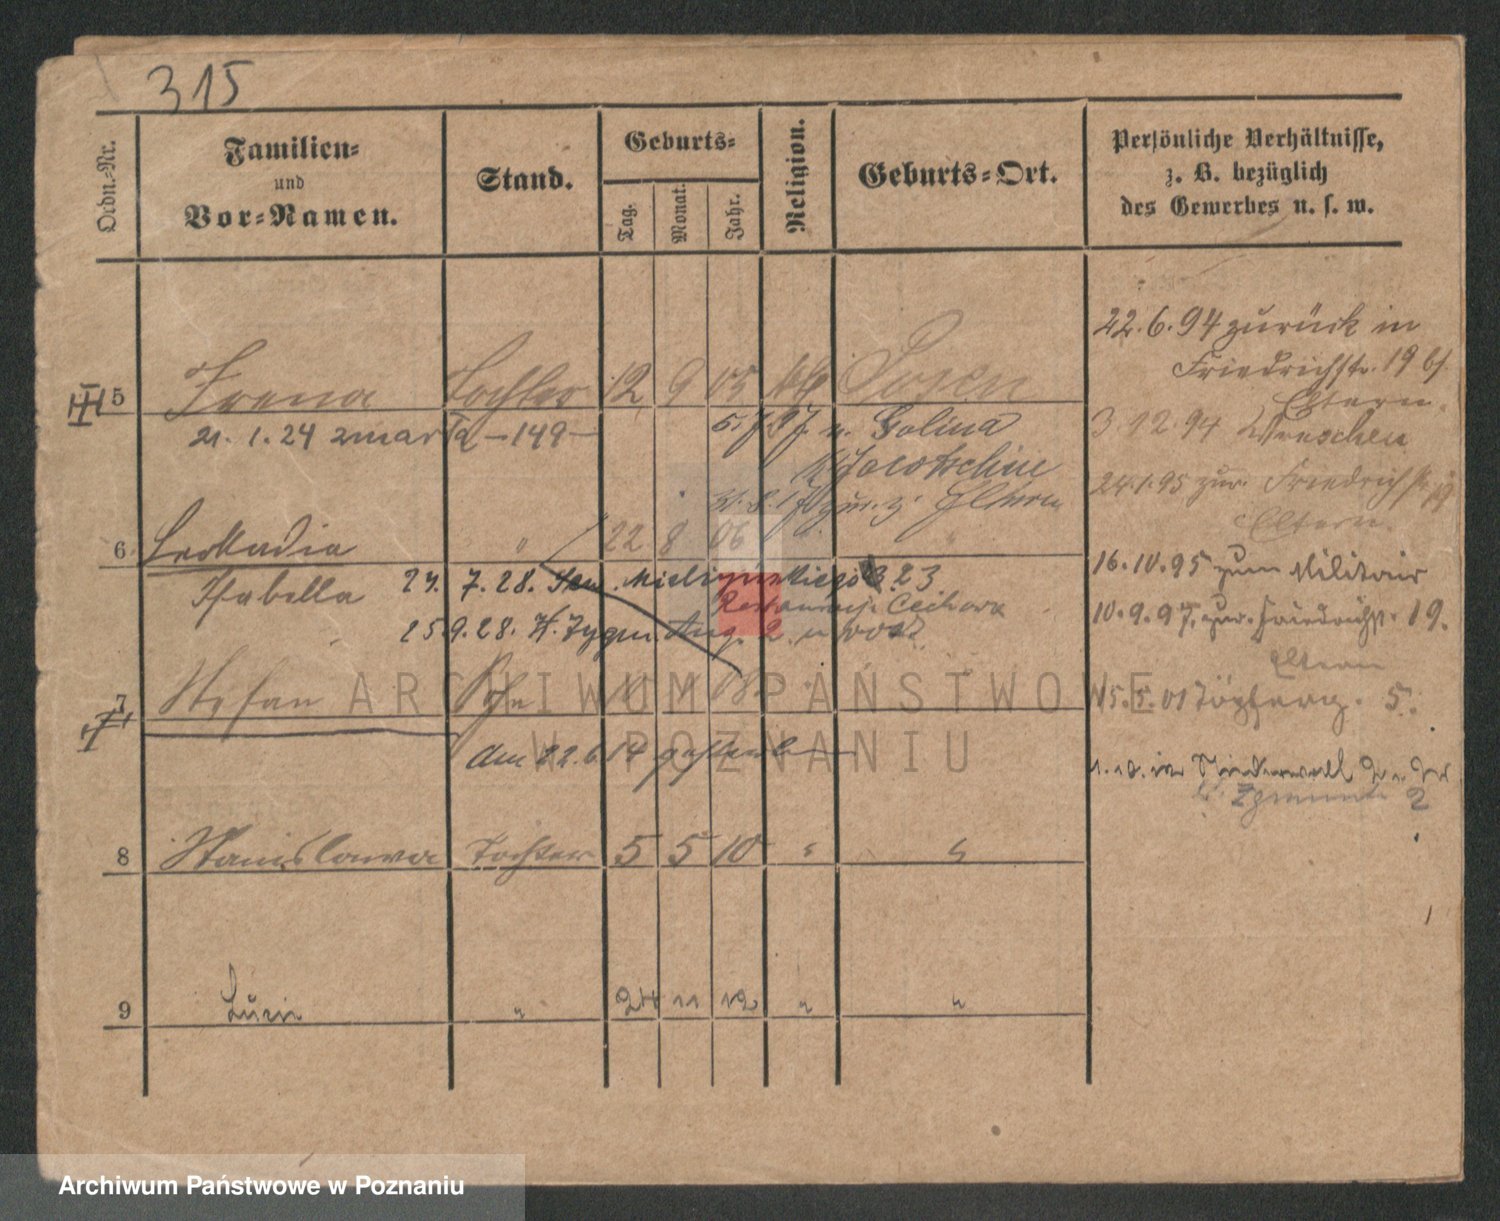 315
Ordn.-Nr.
Familien-
und
Vor-Namen.
Stand.
Geburts-
Tag.
Monat.
Jahr.
Religion.
Geburts-Ort.
Persönliche Verhältnisse,
z. B. bezüglich
des Gewerbes u. s. w.
22.6.94 zurück in
Friedrichstr. 19 b/
Eltern.
5 Irena Tochter 12 9 05 kth Posen
21.1.24 zmarła -149-
5.7.17 n. Golina
3.12.94 Wreschen
Kr. Jarotschin
24.1.95 zur. Friedrichstr. 19
zur. z. Eltern
Eltern.
6. Leokadia " 22 8 06 "
16.10.95 zum Militair
Isabella 24.7.28. Mielżyńskiego 23
Restauracja Cichora
10.9.97. zur. Friedrichstr. 19.
25.9.28. Aug. 2
Eltern
7 Stefan Sohn
15.5.01 5.
am 22.6.14 gestorben
1.10.
2
8 Stanislawa Tochter 5 5 10 " "
9 Luzie " 24 11 12 " "
ARCHIWUM PAŃSTWOWE
W POZNANIU
Archiwum Państwowe w Poznaniu